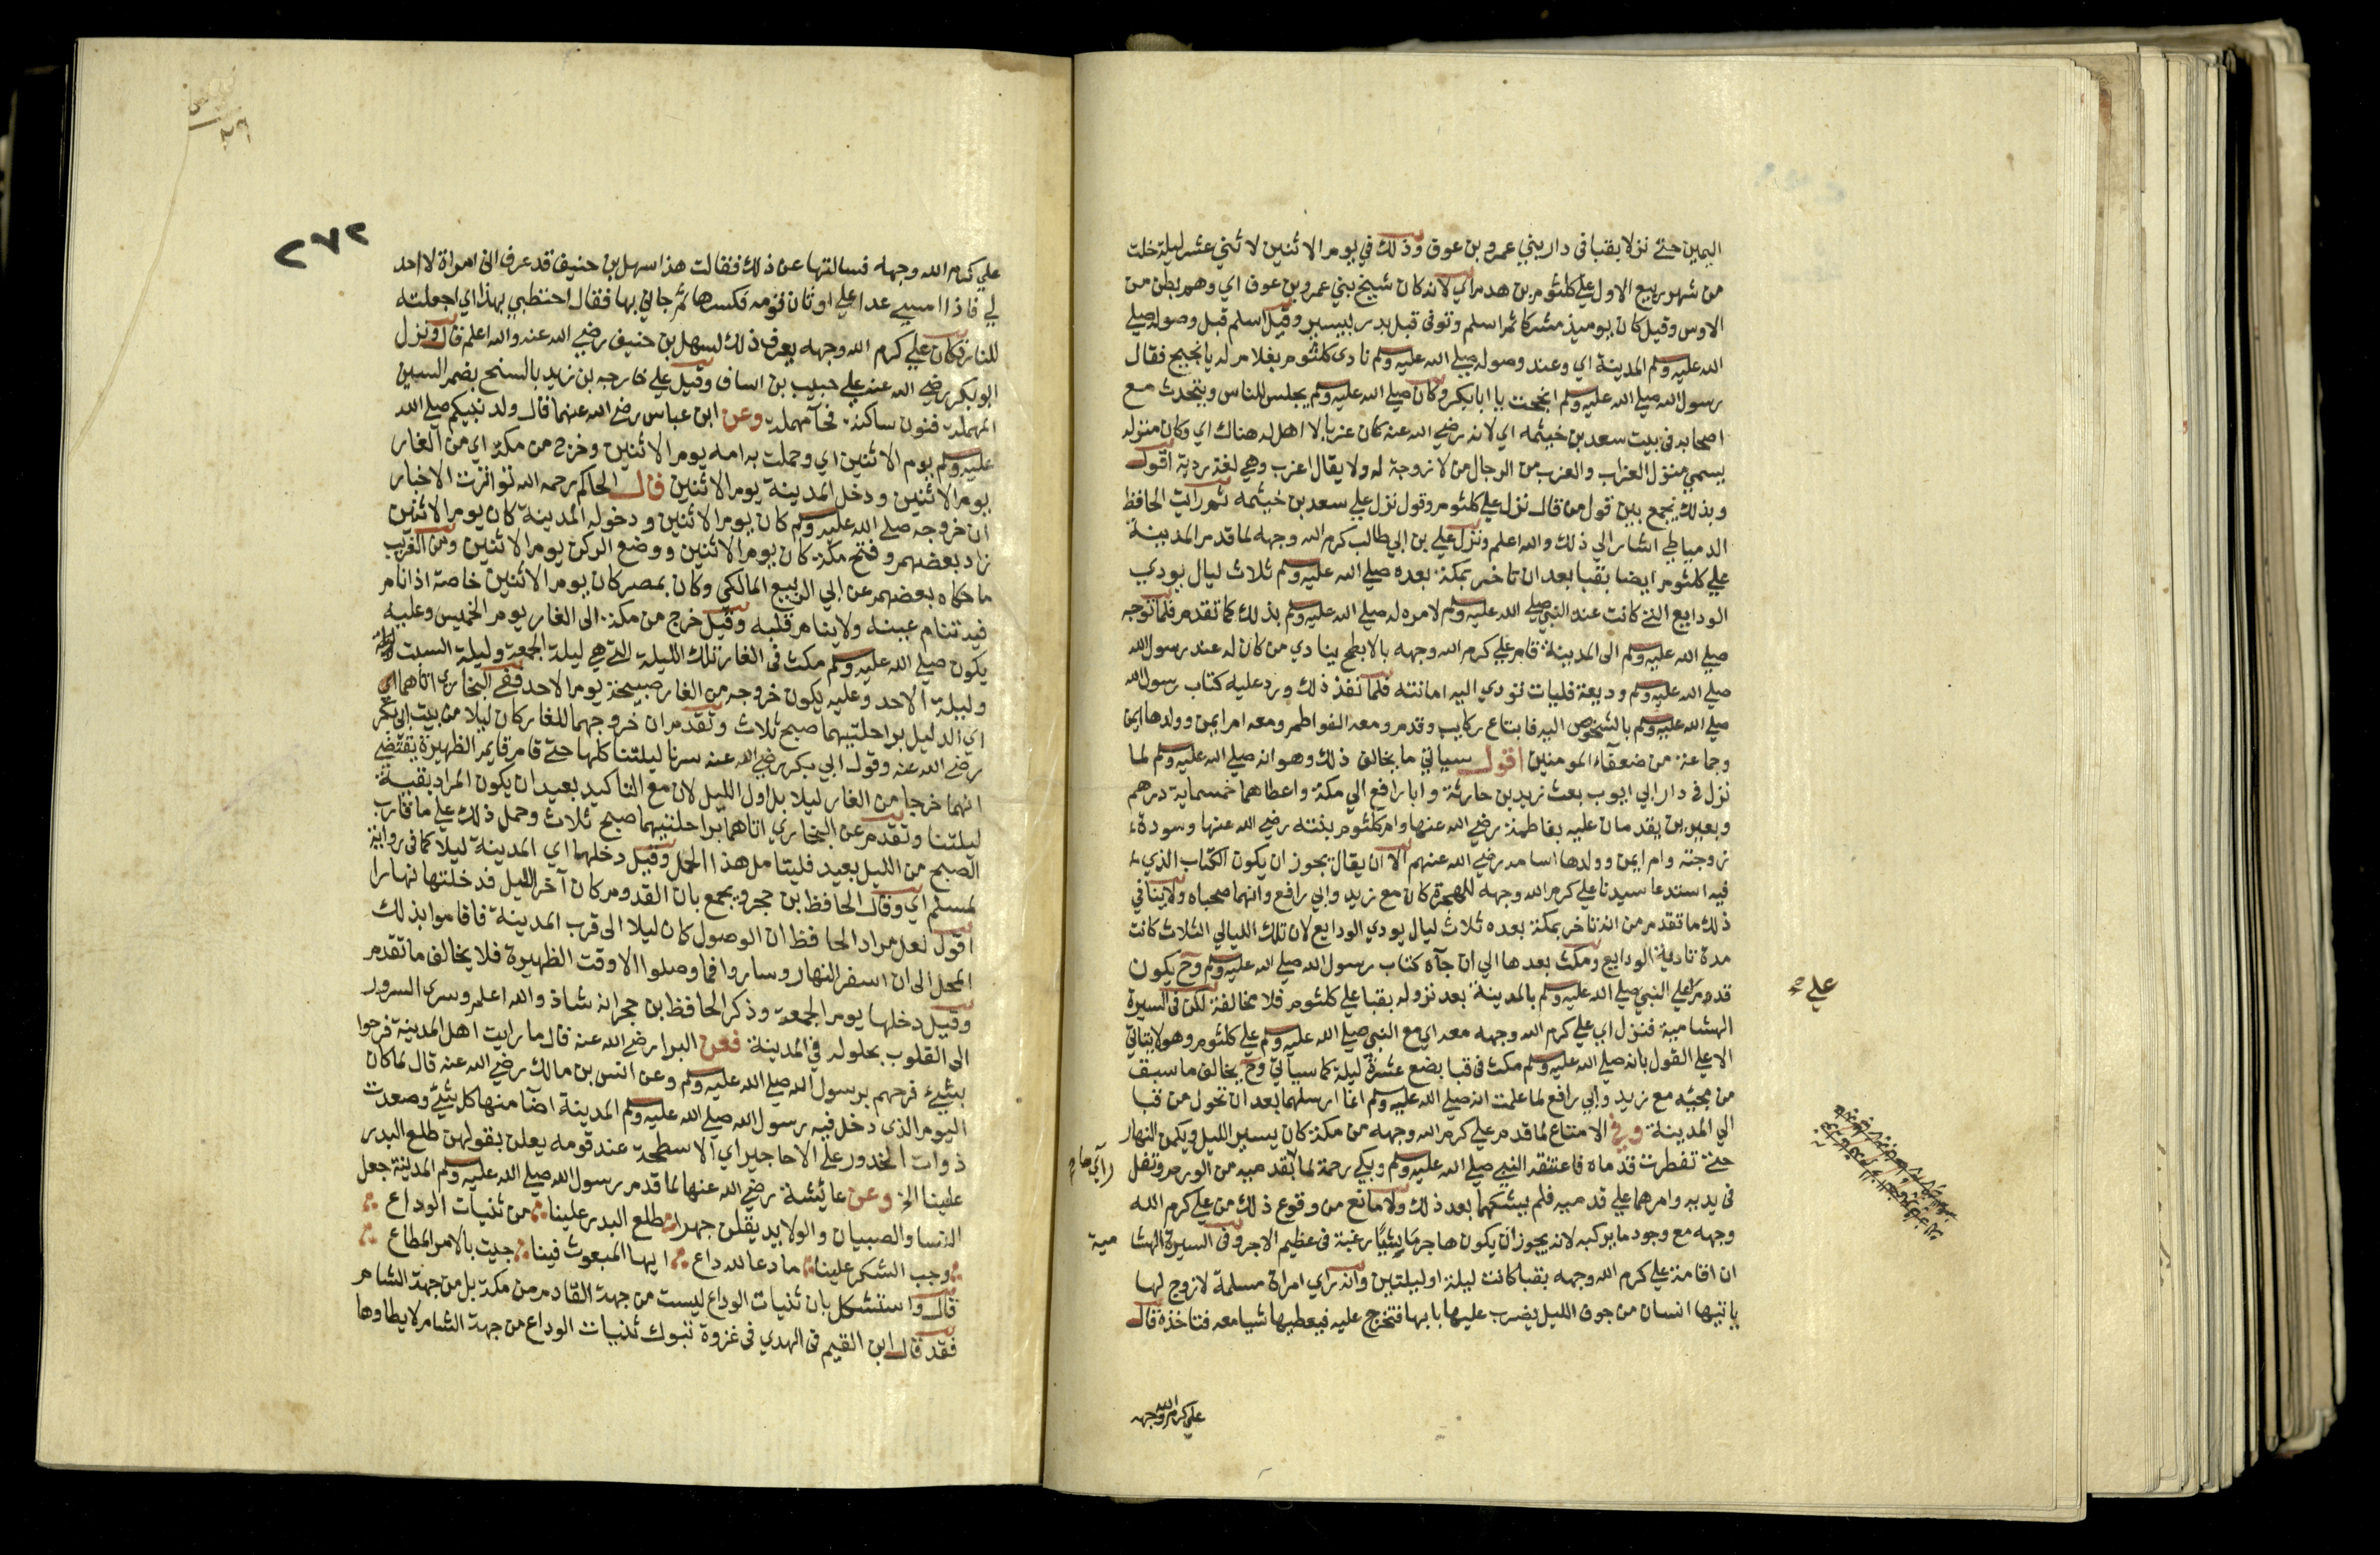 اليمين حتى نزلا بقبا فى دار بني عمرو بن عوف وذلك في يوم الاثنين لاثني عشر ليلة خلت
من شهر ربيع الاول علي كلثوم بن هدم اي لانه كان شيخ بني عمرو بن عوف اي وهم بطن من
الاوس وقيل كان يوميذ مشركا ثم اسلم وتوفى قبل بدر بيسير وقيل اسلم قبل وصوله صلي
الله عليه وسلم المدينة اي وعند وصوله صلي الله عليه وسلم نادى كلثوم بغلام له يا نجيح فقال
رسول الله صلي الله عليه وسلم انجحت يا ابا بكر وكان صلي الله عليه وسلم يجلس للناس ويتحدث مع
اصحابه فى بيت سعد بن خيثمه اي لانه رضي الله عنه كان عزبا لا اهل له هناك اي وكان منزله
يسمي منزل العزاب والعزب من الرجال من لا زوجة له ولا يقال اعزب وهي لغة ردية اقول
وبذلك يجمع بين قول من قال نزل علي كلثوم وقول نزل علي سعد بن خيثمه ثم رايت الحافظ
الدمياطي اشار الي ذلك والله اعلم ونزل علي بن ابي طالب كرم الله وجهه لما قدم المدينة
علي كلثوم ايضا بقبا بعد ان تاخر بمكة بعده صلي الله عليه وسلم ثلاث ليال يودي
الودايع التي كانت عند النبي صلي الله عليه وسلم لامره له صلي الله عليه وسلم بذلك كما تقدم فلما توجه
صلي الله عليه وسلم الى المدينة قام علي كرم الله وجهه بالابطح ينادي من كان له عند رسول الله
صلي الله عليه وسلم وديعة فليات تودي اليه امانته فلما نفذ ذلك ورد عليه كتاب رسول الله
صلي الله عليه وسلم بالشخوص اليه فابتاع ركايب وقدم ومعه الفواطم ومعه ام ايمن وولدها ايمن
وجماعة من ضعفاء المومنين اقول سياتي ما يخالف ذلك وهو انه صلي الله عليه وسلم لما
نزل فى دار ابي ايوب بعث زيد بن حارثة وابا رافع الي مكة واعطاهما خمسماية درهم
وبعيرين يقدمان عليه بفاطمة رضي الله عنها وام كلثوم بنته رضي الله عنها وسودة
زوجته وام ايمن وولدها اسامه رضي الله عنهم الا ان يقال يجوز ان يكون الكتاب الذي
فيه استدعا سيدنا علي كرم الله وجهه للهجرة كان مع زيد وابي رافع وانهما صحباه ولا ينافي
ذلك ما تقدم من انه تاخر بمكة بعده ثلاث ليال يودي الودايع لان تلك الليالي الثلاث كانت
مدة تادية الودايع ومكث بعدها الي ان جآه كتاب رسول الله صلي الله عليه وسلم وح يكون
قدم علي النبي صلي الله عليه وسلم بالمدينة بعد نزوله بقبا علي كلثوم فلا مخالفة لكن فى السيرة
علي صح
الهشامية فنزل اي علي كرم الله وجهه معه اي مع النبي صلي الله عليه وسلم علي كلثوم وهو لا يتاتي
الا علي القول بانه صلي الله عليه وسلم مكث فى قبا بضع عشرة ليلة كما سياتي وح يخالف ما سبق
من مجيئه مع زيد وابي رافع لما علمت انه صلي الله عليه وسلم انما ارسلهما بعد ان تحول من قبا
الي المدينة وفي الامتاع لما قدم علي كرم الله وجهه من مكة كان يسير الليل ويكمن النهار
حتى تفطرت قدماه فاعتنقه النبي صلي الله عليه وسلم وبكي رحمة لما بقدميه من الورم وتفل
فى يديه وامرهما علي قدميه فلم يشكهما بعد ذلك ولا مانع من وقوع ذلك من علي كرم الله
وجهه مع وجود ما يركبه لانه يجوز ان يكون هاجر ماشيا رغبة فى عظيم الاجر وفى السيرة الهشا مية
ان اقامة علي كرم الله وجهه بقبا كانت ليلة او ليلتين وانه راي امراة مسلمة لا زوج لها
ياتيها انسان من جوف الليل يضرب عليها بابها فتخرج عليه فيعطيها شيا معه فتاخذه قال
علي كرم الله وجهه
٢٧٢
علي كرم الله وجهه فسالتها عن ذلك فقالت هذا سهل بن حنيف قد عرف انى امراة لا احد
لي فاذا امسي عدا علي اوثان قومه فكسرها ثم جاني بها فقال احتطبي بهذا اي اجعلته
للنار فكان علي كرم الله وجهه يعرف ذلك لسهل بن حنيف رضي الله عنه والله اعلم قال ونزل
ابو بكر رضي الله عنه علي حبيب بن اساف وقيل علي خارجه بن زيد بالسنح بضم السين
المهملة فنون ساكنة فحآ مهملة وعن ابن عباس رضي الله عنهما قال ولد نبيكم صلي الله
عليه وسلم يوم الاثنين اي وحملت به امه يوم الاثنين وخرج من مكة اي من الغار
يوم الاثنين ودخل المدينة يوم الاثنين قال الحاكم رحمه الله تواترت الاخبار
ان خروجه صلي الله عليه وسلم كان يوم الاثنين ودخوله المدينة كان يوم الاثنين
زاد بعضهم وفتح مكة كان يوم الاثنين ووضع الركن يوم الاثنين ومن الغريب
ما حكاه بعضهم عن ابي الربيع المالكي وكان بمصر كان يوم الاثنين خاصة اذا نام
فيه تنام عينه ولا ينام قلبه وقيل خرج من مكة الى الغار يوم الخميس وعليه
يكون صلي الله عليه وسلم مكث فى الغار تلك الليلة التي هي ليلة الجمعة وليلة السبت
وليلة الاحد وعليه يكون خروجه من الغار صبيحة يوم الاحد ففي البخاري اتاهما
اي الدليل براحلتيهما صبح ثلاث وتقدم ان خروجهما للغار كان ليلا من بيت ابي بكر
رضي الله عنه وقول ابي بكر رضي الله عنه سرنا ليلتنا كلها حتى قام قايم الظهيرة يقتضي
انهما خرجا من الغار ليلا بل اول الليل لان مع التاكيد بعيد ان يكون المراد بقية
ليلتنا وتقدم عن البخاري اتاهما براحلتيهما صبح ثلاث وحمل ذلك علي ما قارب
الصبح من الليل بعيد فليتامل هذا المحل وقيل دخلها اي المدينة ليلا كما فى رواية
لمسلم اي وقال الحافظ بن حجر ويجمع بان القدوم كان آخر الليل فدخلتها نهارا
اقول لعل مراد الحافظ ان الوصول كان ليلا الى قرب المدينة فاقاموا بذلك
المحل الى ان اسفر النهار وساروا فما وصلوا الا وقت الظهيرة فلا يخالف ما تقدم
وقيل دخلها يوم الجمعة وذكر الحافظ بن حجر انه شاذ والله اعلم وسرى السرور
الى القلوب بحلوله في المدينة فعن البرا رضي الله عنه قال ما رايت اهل المدينة فرحوا
بشيء فرحهم برسول الله صلي الله عليه وسلم وعن انس بن مالك رضي الله عنه قال لما كان
اليوم الذى دخل فيه رسول الله صلي الله عليه وسلم المدينة اضآ منها كل شئ وصعدت
ذوات الخدور علي الاجاجير اي الاسطحة عند قومه يعلن بقولهن طلع البدر
علينا الخ وعن عائشة رضي الله عنها لما قدم رسول الله صلي الله عليه وسلم المدينة جعل
النسا والصبيان والولايد يقلن جهرا طلع البدر علينا من ثنيات الوداع
وجب الشكر علينا ما دعا لله داع ايها المبعوث فينا جيت بالامر المطاع
قال واستشكل بان ثنيات الوداع ليست من جهة القادم من مكة بل من جهة الشام
فقد قال ابن القيم فى الهدي فى غزوة تبوك ثنيات الوداع من جهة الشام لا يطاوها